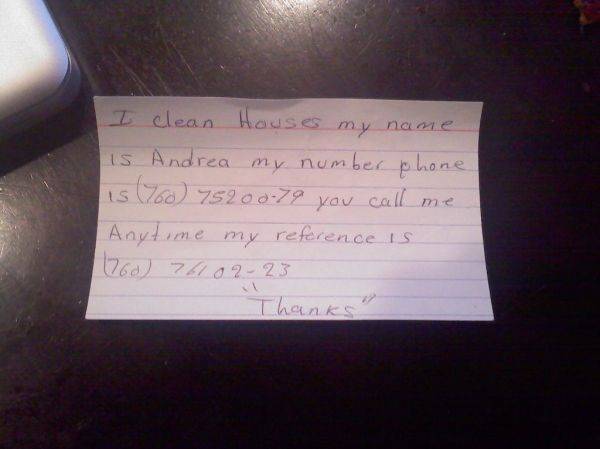 I clean Houses my name
is Andrea my number phone
is (760) 75200-79 you call me
Anytime my reference is
(760) 76102-23
"Thanks"